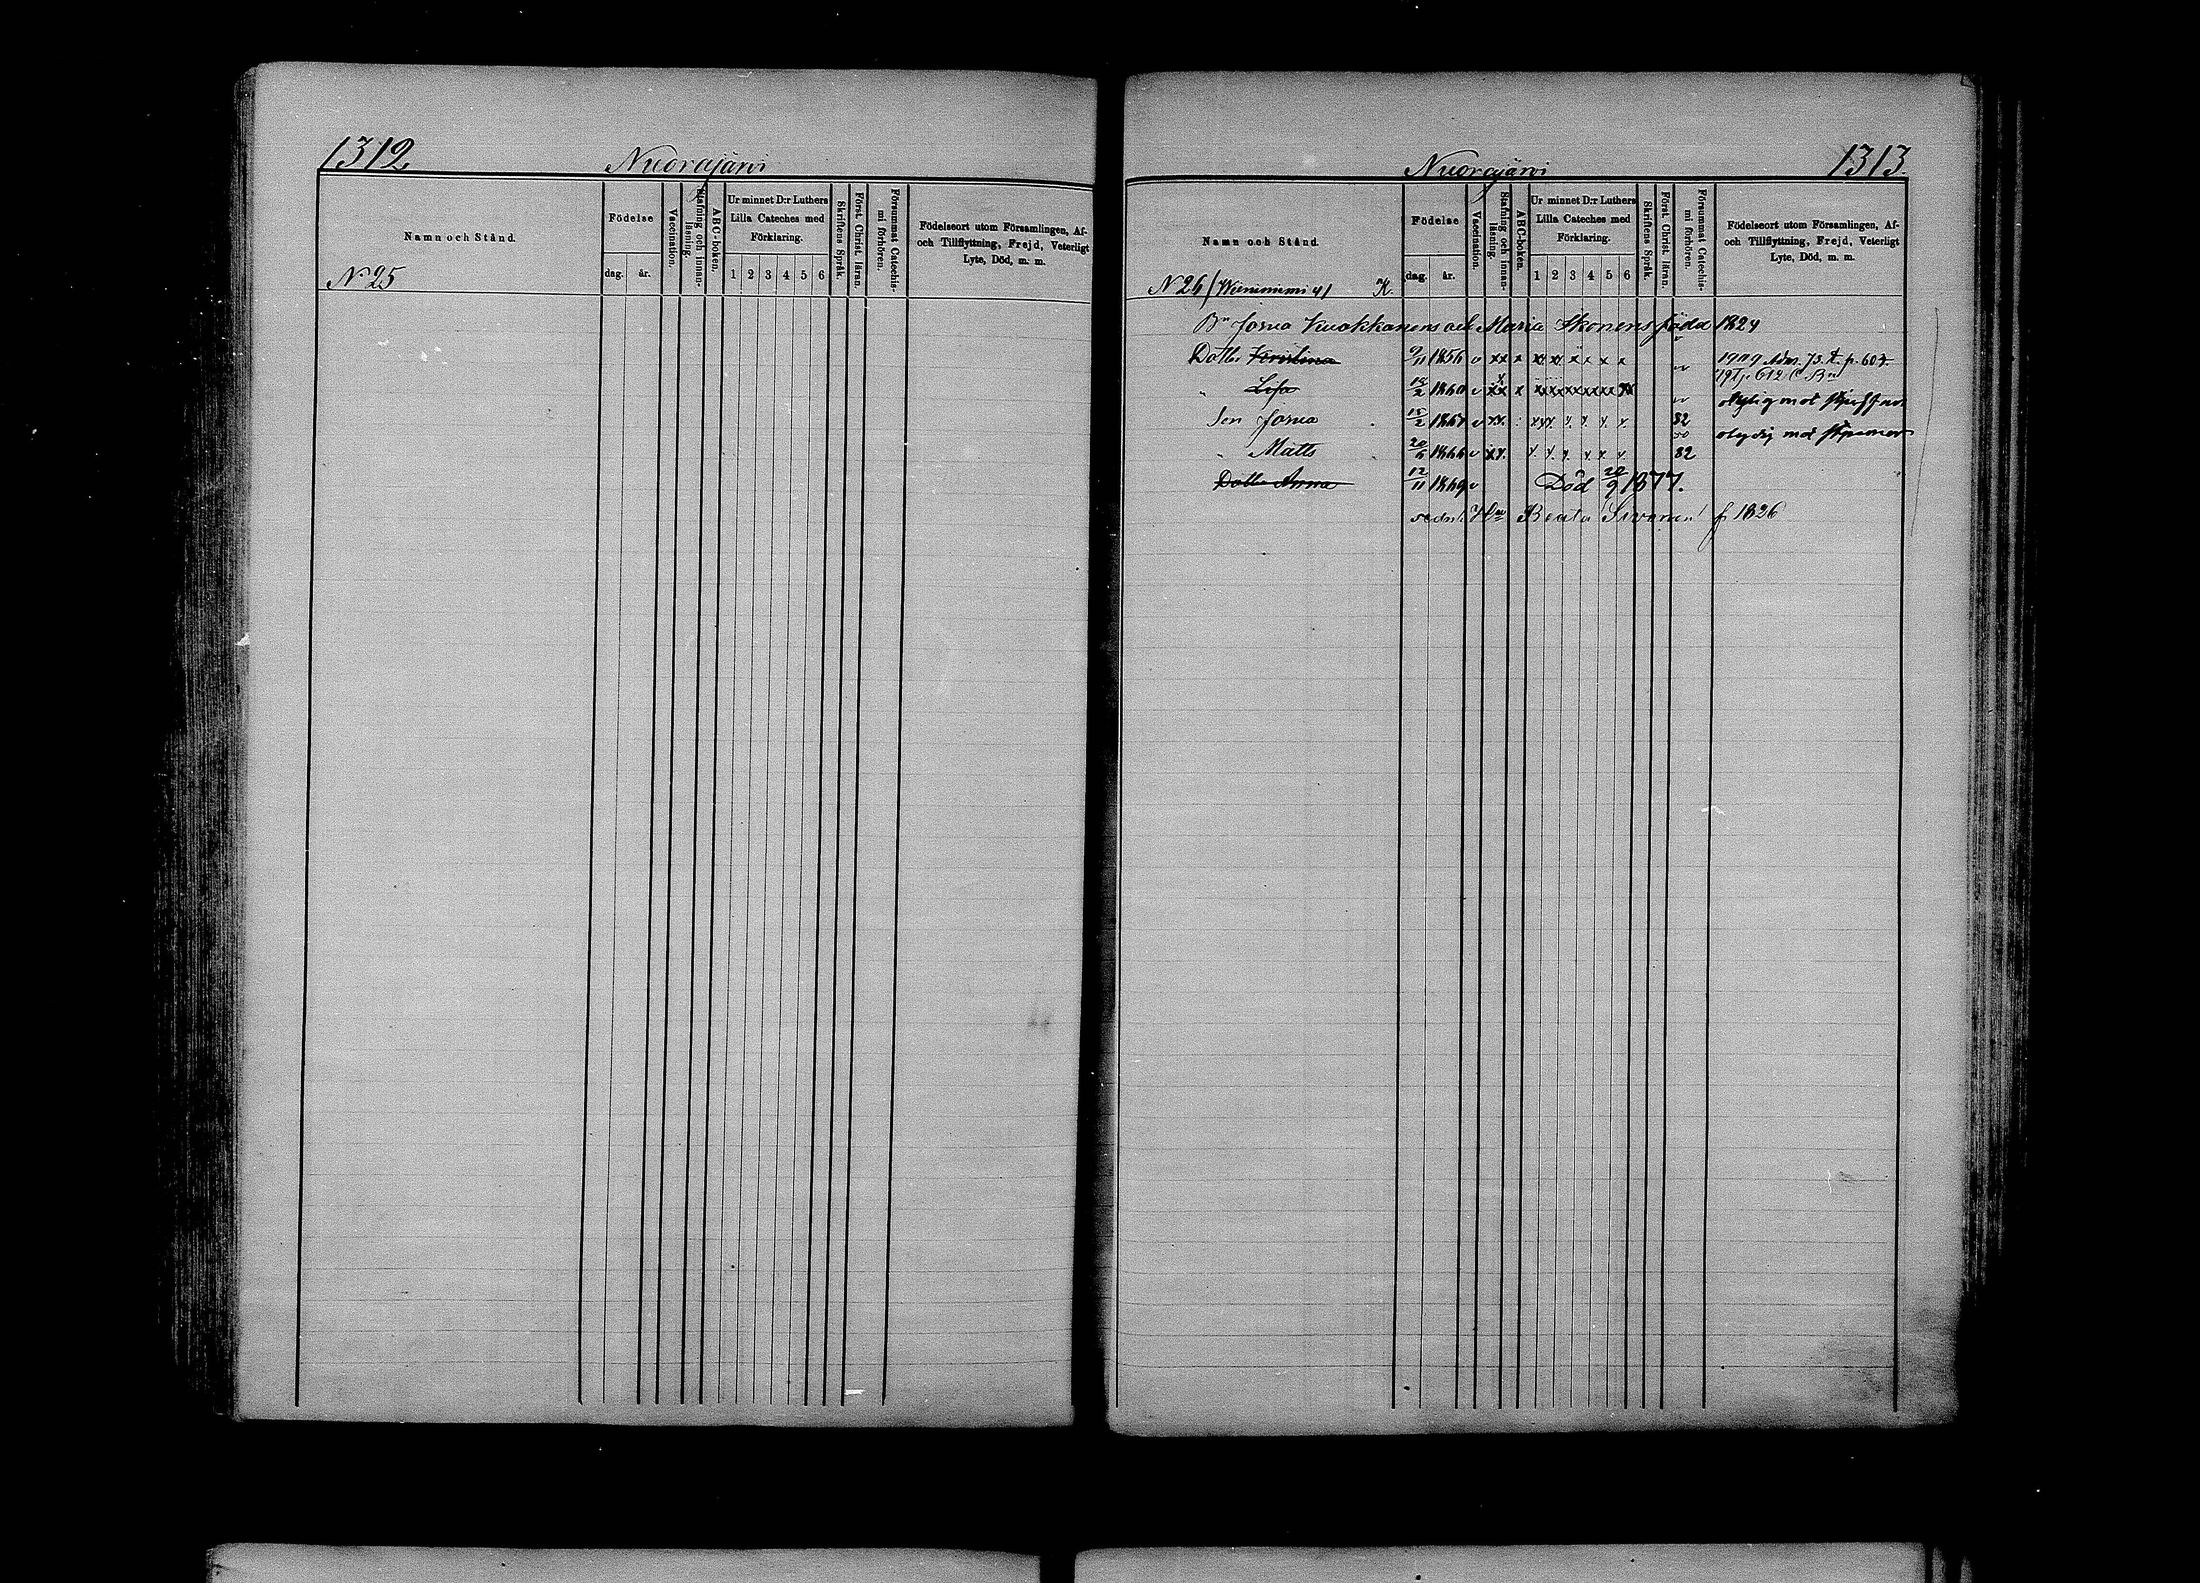 1312.
Nuorajärvi
Namn och Stånd.
Födelse
dag. år.
Vaccination.
Stafning och innan-läsning.
ABC-boken.
Ur minnet D:r Luthers
Lilla Cateches med
Förklaring.
1 2 3 4 5 6
Skriftens Språk.
Först. Christ. läran.
Försummat Catechis-
mi förhören.
Födelseort utom Församlingen, Af-
och Tillflyttning, Frejd, Veterligt
Lyte, Död, m. m.
No 25
Nuorajärvi
1313.
Namn och Stånd.
Födelse
dag. år.
Vaccination.
Stafning och innan-läsning.
ABC-boken.
Ur minnet D:r Luthers
Lilla Cateches med
Förklaring.
1 2 3 4 5 6
Skriftens Språk.
Först. Christ. läran.
Försummat Catechis-
mi förhören.
Födelseort utom Församlingen, Af-
och Tillflyttning, Frejd, Veterligt
Lyte, Död, m. m.
N 26 / 41 K.
Bn Josua Kuokkanens och Maria Ikonens född 1824
Dottr Kristina 9/11 1856 v xx x x x x x x x
Lisa 1860 v xx x x x x x x x x
Son Josua 15/2 186 v x x x x x x x x 82
Matts 20/6 1866 v x x x x x x x x 82
Dottr Anna 12/11 1869 v Död 20/9 1877.
Beata f 1826